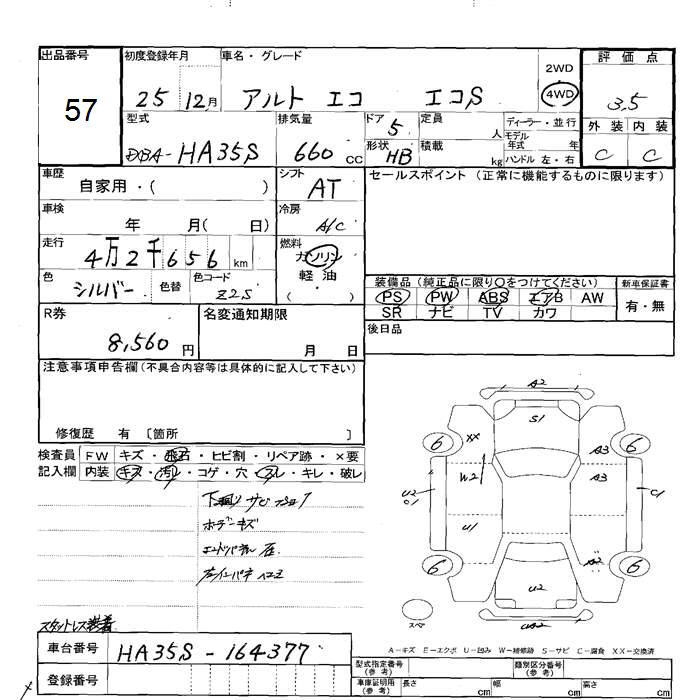 出品番号 初度登録年月 車名・グレード 評価点
57 25 12月 アルト エコ エコS 2WD 4WD 3.5
型式 排気量 ドア 5 定員 人 ディーラー・並行 外装 内装
DBA-HA35S 660 cc 形状 HB 積載 kg モデル年式 年 ハンドル 左・右 C C
車歴 シフト セールスポイント (正常に機能するものに限ります)
自家用・( ) AT
車検 冷房
年 月( 日) A/C
走行 燃料
4万2千656 km ガソリン
色 色替 色コード 軽油 装備品 (純正品に限り○をつけてください) 新車保証書
シルバー Z2S ( ) PS PW ABS エアB AW 有・無
R券 名変通知期限 SR ナビ TV カワ
8,560円 月 日 後日品
注意事項申告欄(不具合内容等は具体的に記入して下さい)
修復歴 有 〔箇所 〕
検査員 FW キズ・飛石・ヒビ割・リペア跡・×要
記入欄 内装 キズ・汚レ・コゲ・穴・スレ・キレ・破レ
下廻り サビ
ボデーキズ
エンドパネル
A2
S1
6 XX 6
A3
W2 A3
U2 C1 C1
U1
6 6
U2
スペア
スタットレス装着
車台番号 HA35S-164377
登録番号
A-キズ E-エクボ U-凹み W-補修跡 S-サビ C-腐食 XX-交換済
型式指定番号(参考) 類別区分番号(参考)
車庫証明用(参考) 長さ cm 幅 cm 高さ cm